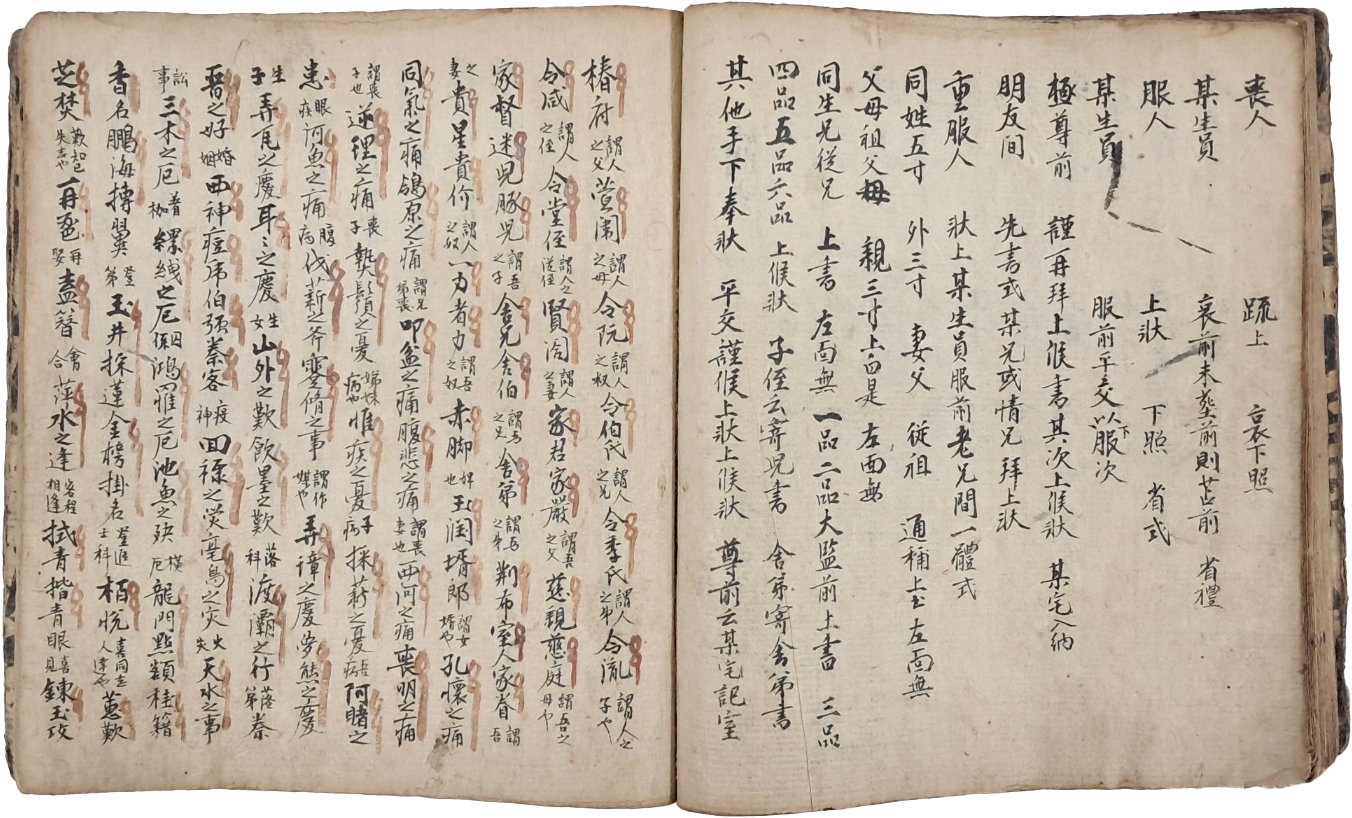 喪人 疏上 哀下照
某生員 哀前未塟前則苫前 省禮
服人 上狀 下照 省式
某生員 服前平交以下服次
極尊前 謹再拜上候書其次上候狀 某宅入納
朋友間 先書或某兄或情兄拜上狀
重服人 狀上某生員服前老兄間一體式
同姓五寸 外三寸 妻父 從祖 通稱上书左面無
父母祖父母 親三寸上白是 左面無
同生兄從兄 上書 左面無 一品二品大監前上書 三品
四品五品六品 上候狀 子侄云寄児書 舍弟寄舍弟書
其他手下奉狀 平交謹候上狀上候狀 尊前云某宅記室
椿府謂人之父萱闈謂人之母令阮謂人之叔令伯氏謂人之兄令季氏謂人之弟令胤謂人之子也
令咸謂人之侄令堂侄謂人之從侄賢閤謂人之妻家君家嚴謂吾之父慈親慈庭謂吾之母也
家督迷児豚児謂吾之子舍兄舍伯謂吾之兄舍弟謂吾之弟荊布室人家眷謂吾
之妻貴星貴价謂人之奴一力者力謂吾之奴赤脚婢也玉润壻郎謂女壻也孔懷之痛
同氣之痛鴒原之痛謂兄弟喪叩盆之痛腹悲之痛謂喪妻也西河之痛喪明之痛
謂喪子也逆理之痛喪子煑鬚之憂姊妹病也惟疾之憂子病採薪之憂吾病阿睹之
患眼疾河魚之痛腹病伐薪之斧蹇脩之事謂作媒也弄璋之慶夢熊之慶
生子弄瓦之慶耳耳之慶生女山外之歎飲墨之歎落科渡灞之行落第秦
晉之好婚姻西神痘席伯張秦客疫神回祿之灾毫鳥之灾火失天水之事
訟事三木之厄着枷縲絏之厄囚係鴻罹之厄池魚之殃橫厄龍門點額桂籍
香名鵬海搏翼登第玉井採蓮金榜掛名登進士科栢悅喜同志人達也蕙歎
芝焚歎知己失志也再醮再娶盍簪會合萍水之逢客程相逢拭青揩青眼喜見鍊玉攻